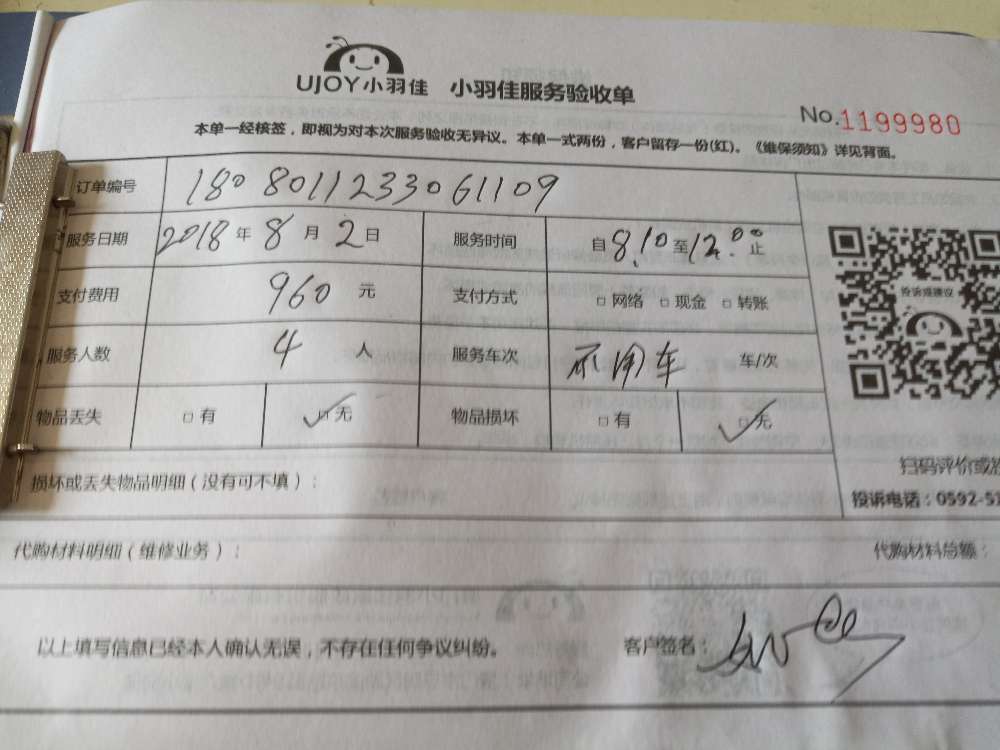 UJOY小羽佳 小羽佳服务验收单
No.1199980
本单一经核签，即视为对本次服务验收无异议。本单一式两份，客户留存一份(红)。《维保须知》详见背面。
订单编号 18080112330 61109
服务日期 2018年8月2日 服务时间 自8.10至12.00止
支付费用 960元 支付方式 □网络 □现金 □转账
投诉或建议
服务人数 4人 服务车次 不用车 车/次
物品丢失 □有 ☑无 物品损坏 □有 ☑无
扫码评价或
损坏或丢失物品明细（没有可不填）：
投诉电话：0592-5
代购材料明细（维修业务）： 代购材料总额：
以上填写信息已经本人确认无误，不存在任何争议纠纷。 客户签名：